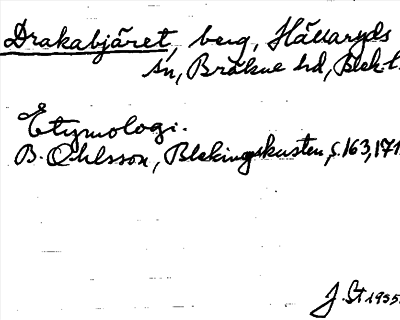 Drakabjäret, berg, Hällaryds
sn, Bräkne hd, Blek. l.
Etymologi.
B. Ohlsson, Blekingskusten, s. 163, 171.
J. St 1955.